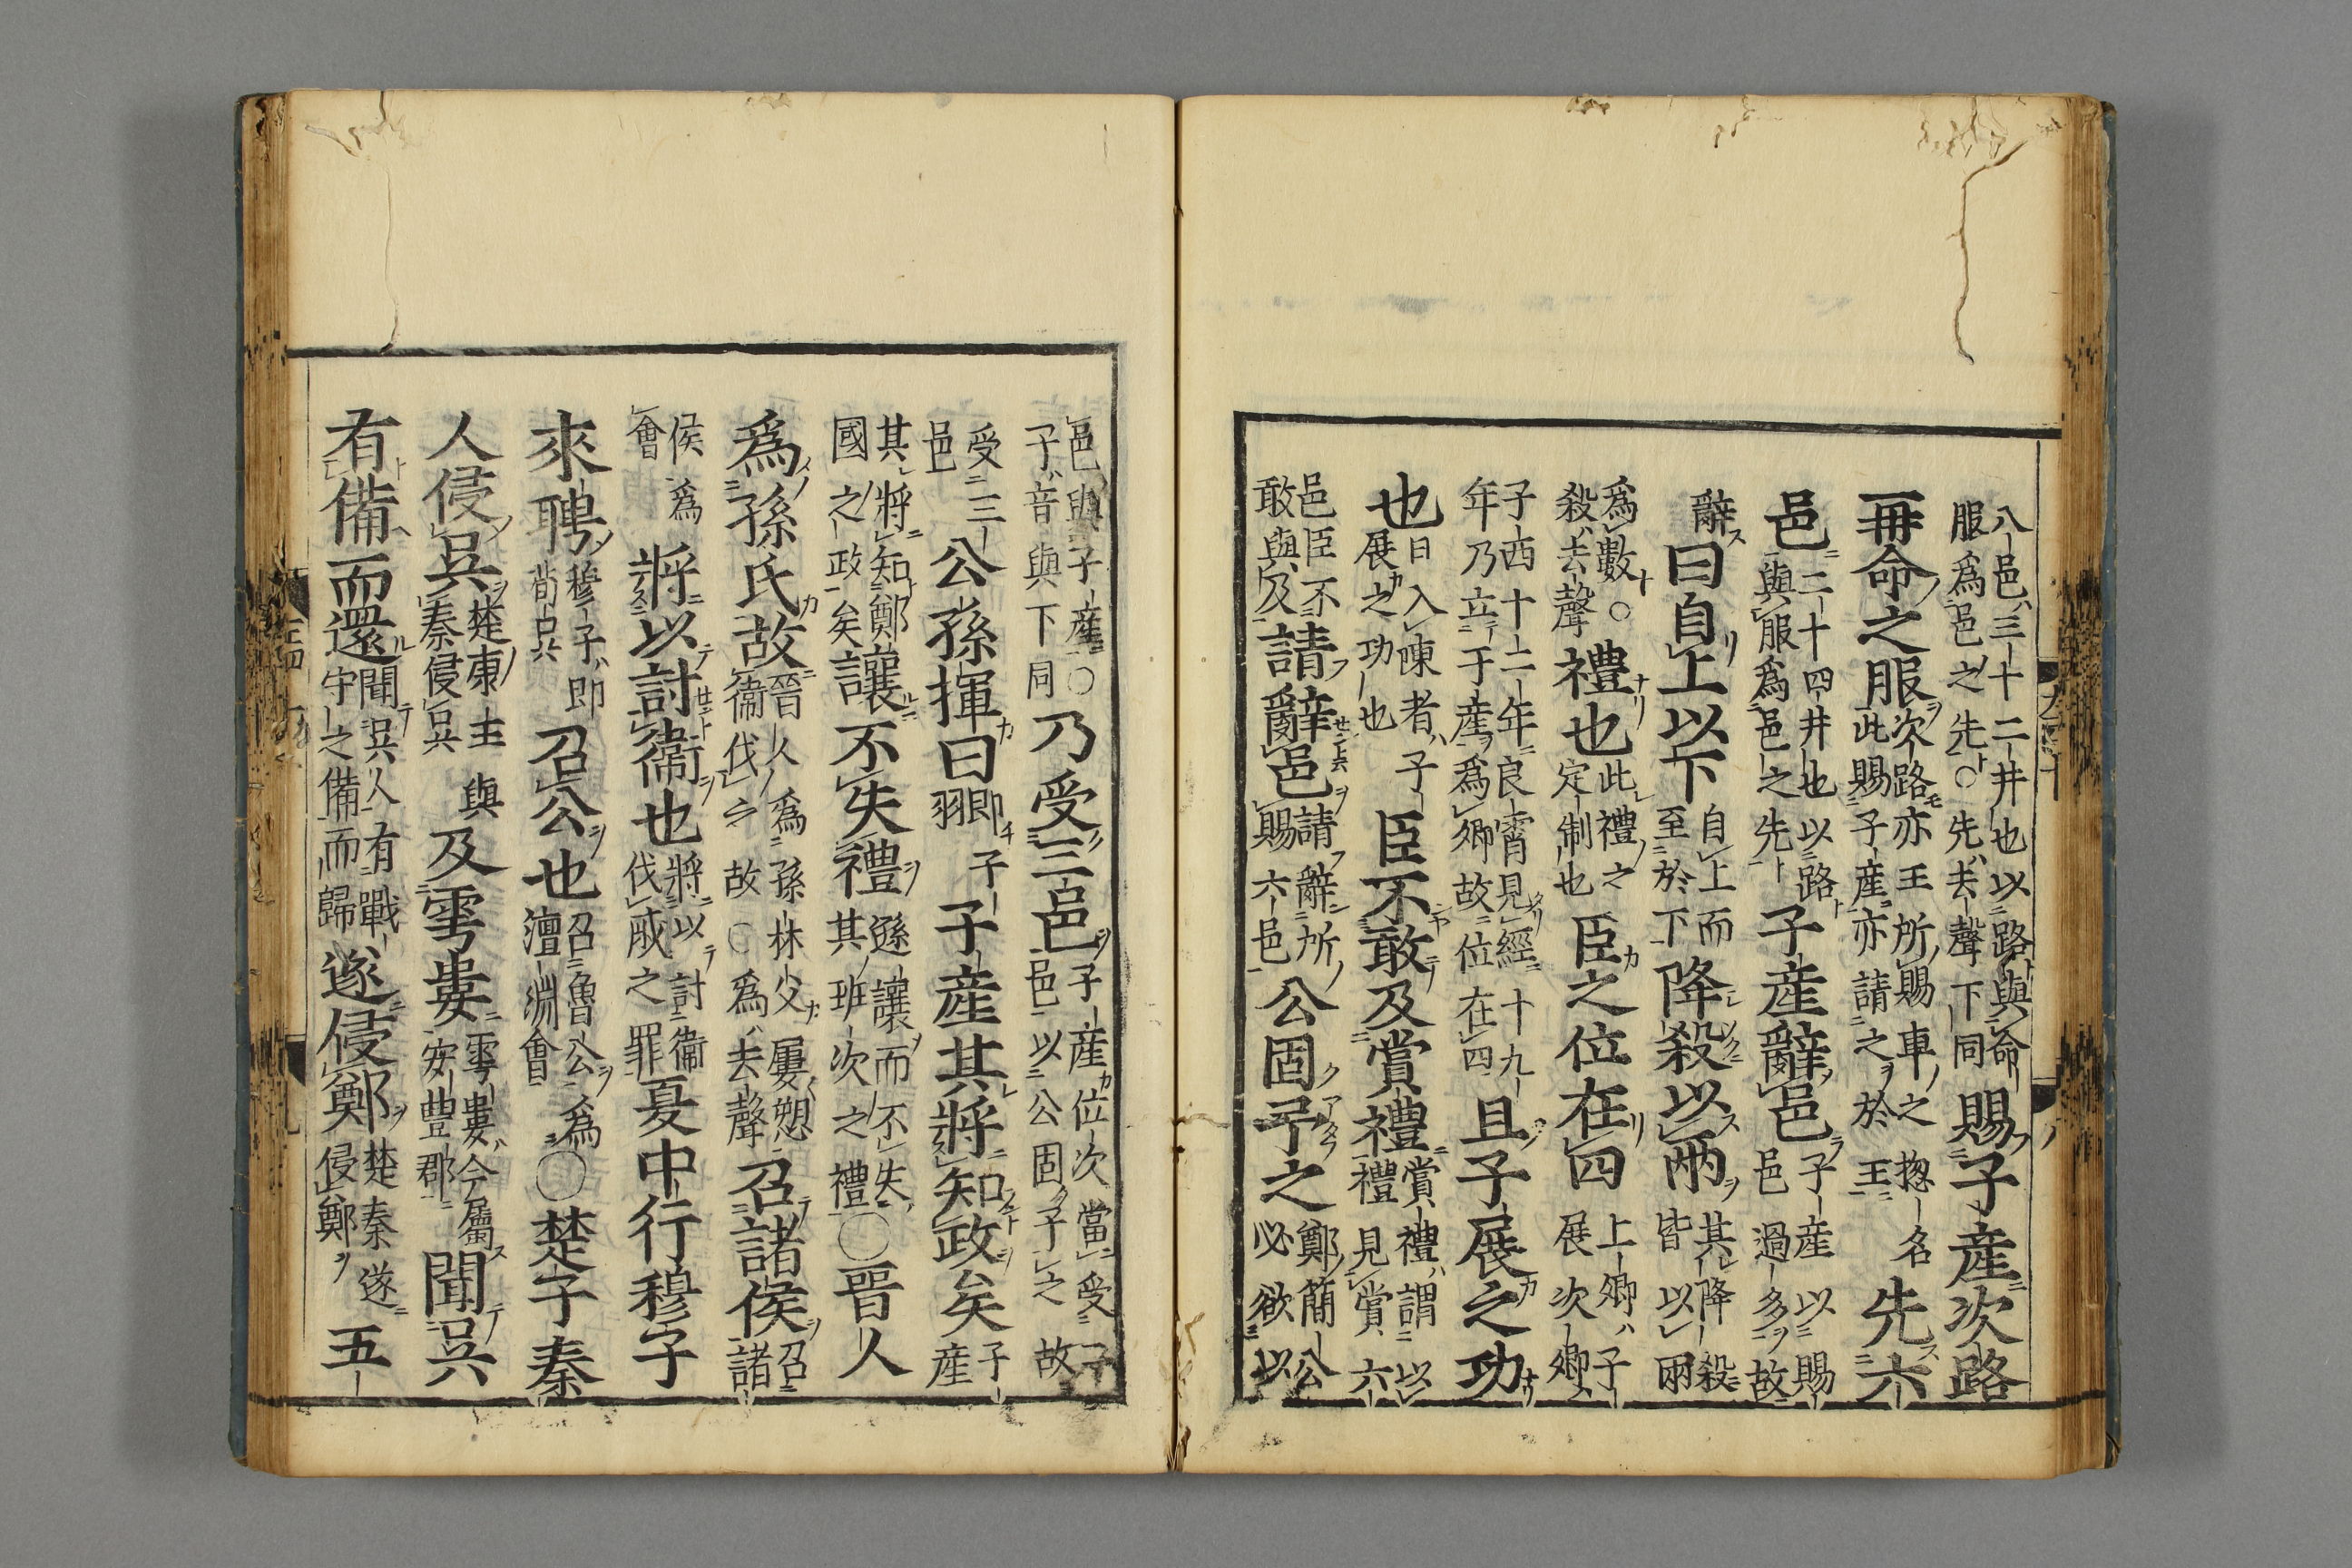 八邑三十二井也以路與命
服爲邑之先○先去聲下同
賜子產次路
再命之服
次路亦王所賜車之揔名
此賜子產亦請之於王
先六
邑
二十四井也以路
與服爲邑之先
子產辭邑
子產以賜
邑過多故
辭
曰自上以下
自上而
至於下
降殺以兩
其降殺
皆以兩
爲數○
殺去聲
禮也
此禮之
定制也
臣之位在四
上卿子
展次卿
子西十二年良霄見經十九
年乃立子產爲卿故位在四
且子展之功
也
日入陳者子
展之功也
臣不敢及賞禮
賞禮謂以
禮見賞六
邑臣不
敢與及
請辭邑
請辭所
賜六邑
公固予之
鄭簡公
必欲以
邑與子產○
予音與下同
乃受三邑
子產位次當受
邑以公固予之故
受三
邑
公孫揮曰
即子
羽
子產其將知政矣
子
產
其將知鄭
國之政矣
讓不失禮
遜讓而不失
其班次之禮
○晉人
爲孫氏故
晉人爲孫林父屢愬
衞伐之故○爲去聲
召諸侯
召
諸
侯爲
會
將以討衞也
將以討衞
伐戚之罪
夏中行穆子
來聘
穆子即
荀吳
召公也
召魯公爲
澶淵會
○楚子秦
人侵吳
楚東主與
秦侵吳
及雩婁
雩婁今屬
安豐郡
聞吳
有備而還
聞吳人有戰
守之備而歸
遂侵鄭
楚秦遂
侵鄭
五